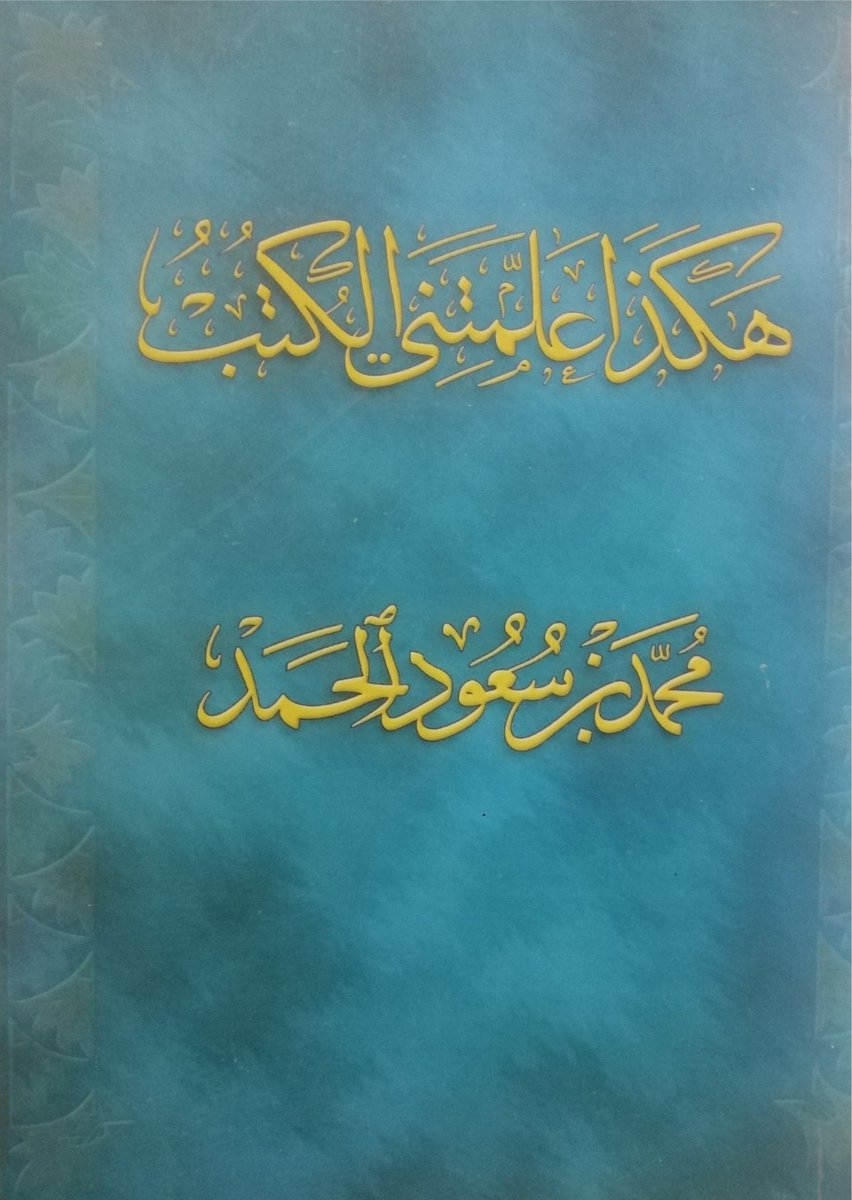 هَكَذَا عَلَّمَتْنِي الْكُتُبُ
مُحَمَّد بْن سُعُود ٱلْحَمَد